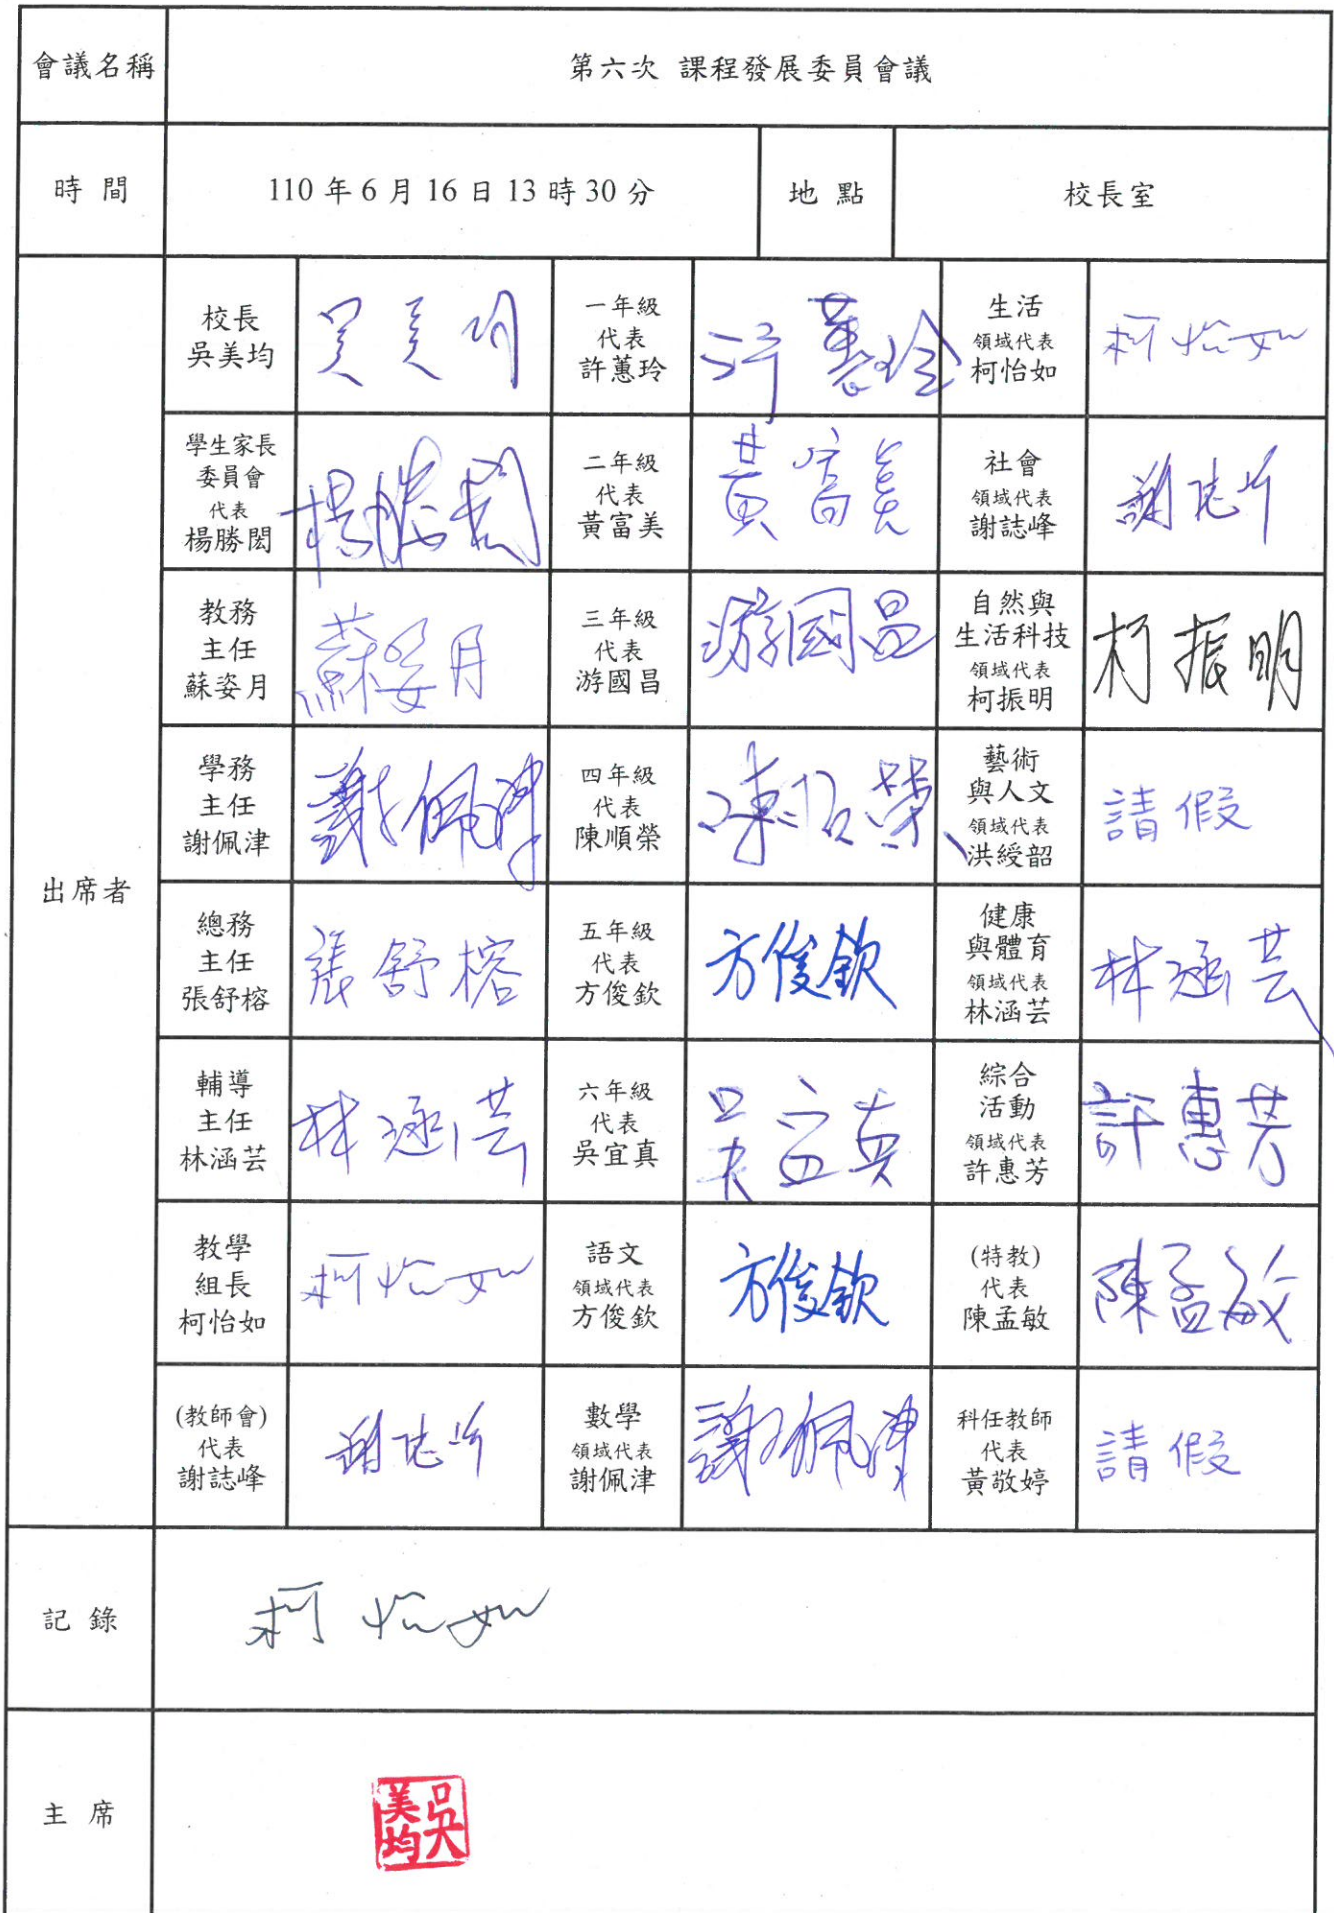 會議名稱
第六次 課程發展委員會議
時 間
110 年 6 月 16 日 13 時 30 分
地 點
校長室
出席者
校長
吳美均
吳美均
一年級
代表
許蕙玲
許蕙玲
生活
領域代表
柯怡如
柯怡如
學生家長
委員會
代表
楊勝閎
楊勝閎
二年級
代表
黃富美
黃富美
社會
領域代表
謝誌峰
謝誌峰
教務
主任
蘇姿月
蘇姿月
三年級
代表
游國昌
游國昌
自然與
生活科技
領域代表
柯振明
柯振明
學務
主任
謝佩津
謝佩津
四年級
代表
陳順榮
陳順榮
藝術
與人文
領域代表
洪綬韶
請假
總務
主任
張舒榕
張舒榕
五年級
代表
方俊欽
方俊欽
健康
與體育
領域代表
林涵芸
林涵芸
輔導
主任
林涵芸
林涵芸
六年級
代表
吳宜真
吳宜真
綜合
活動
領域代表
許惠芳
許惠芳
教學
組長
柯怡如
柯怡如
語文
領域代表
方俊欽
方俊欽
(特教)
代表
陳孟敏
陳孟敏
(教師會)
代表
謝誌峰
謝誌峰
數學
領域代表
謝佩津
謝佩津
科任教師
代表
黃敬婷
請假
記 錄
柯怡如
主 席
吳美均